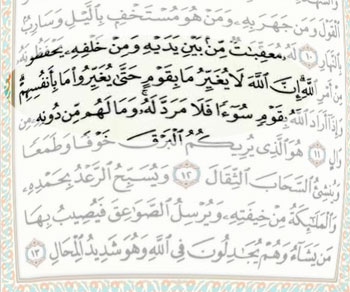 ٱلْقَوْلَ وَمَن جَهَرَ بِهِۦ وَمَنْ هُوَ مُسْتَخْفٍۭ بِٱلَّيْلِ وَسَارِبٌۢ
بِٱلنَّهَارِ ١٠ لَهُۥ مُعَقِّبَٰتٌ مِّنۢ بَيْنِ يَدَيْهِ وَمِنْ خَلْفِهِۦ يَحْفَظُونَهُۥ
مِنْ أَمْرِ ٱللَّهِۗ إِنَّ ٱللَّهَ لَا يُغَيِّرُ مَا بِقَوْمٍ حَتَّىٰ يُغَيِّرُوا۟ مَا بِأَنفُسِهِمْۗ
وَإِذَآ أَرَادَ ٱللَّهُ بِقَوْمٍ سُوٓءًا فَلَا مَرَدَّ لَهُۥۚ وَمَا لَهُم مِّن دُونِهِۦ
مِن وَالٍ ١١ هُوَ ٱلَّذِى يُرِيكُمُ ٱلْبَرْقَ خَوْفًا وَطَمَعًا
وَيُنشِئُ ٱلسَّحَابَ ٱلثِّقَالَ ١٢ وَيُسَبِّحُ ٱلرَّعْدُ بِحَمْدِهِۦ
وَٱلْمَلَٰٓئِكَةُ مِنْ خِيفَتِهِۦ وَيُرْسِلُ ٱلصَّوَٰعِقَ فَيُصِيبُ بِهَا
مَن يَشَآءُ وَهُمْ يُجَٰدِلُونَ فِى ٱللَّهِ وَهُوَ شَدِيدُ ٱلْمِحَالِ ١٣